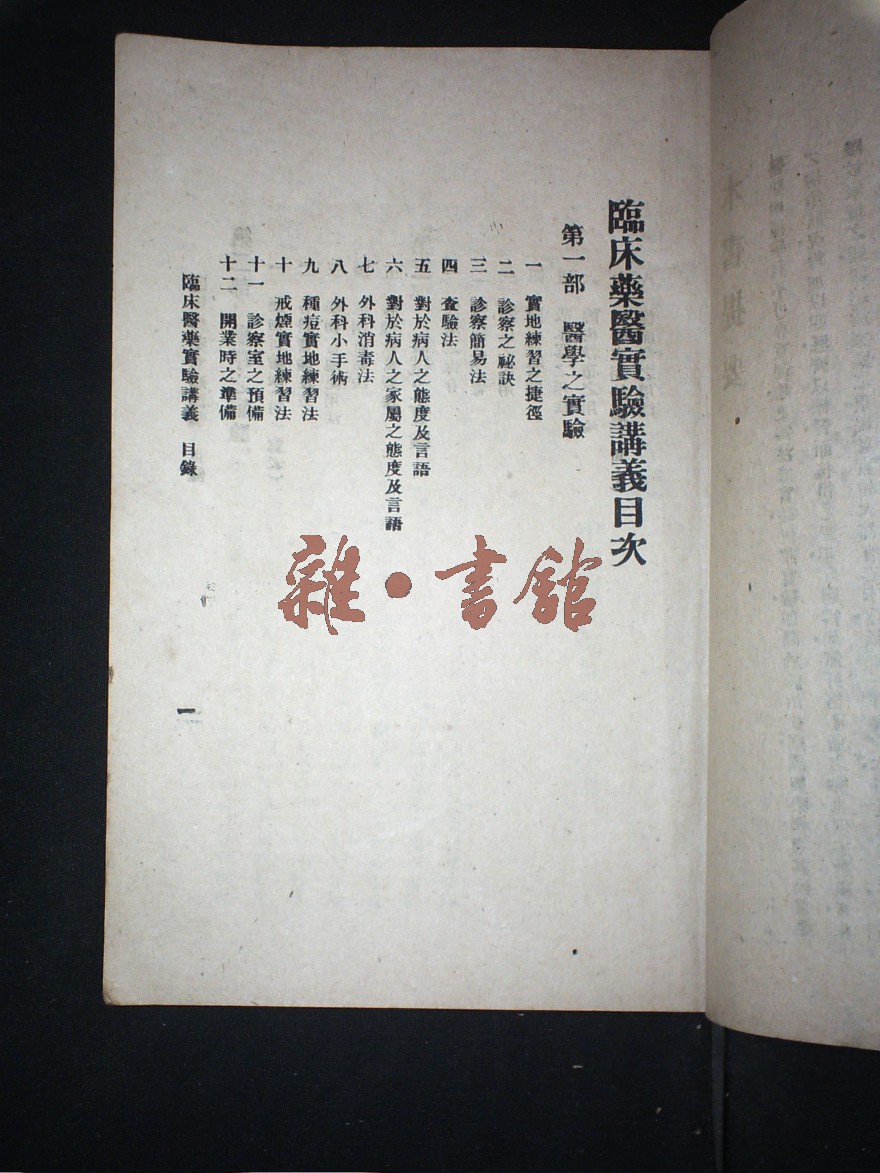 臨床藥醫實驗講義目次
第一部 醫學之實驗
一 實地練習之捷徑
二 診察之祕訣
三 診察簡易法
四 查驗法
五 對於病人之態度及言語
六 對於病人之家屬之態度及言語
七 外科消毒法
八 外科小手術
九 種痘實地練習法
十 戒煙實地練習法
十一 診察室之預備
十二 開業時之準備
臨床醫藥實驗講義 目錄
一
雜·書館